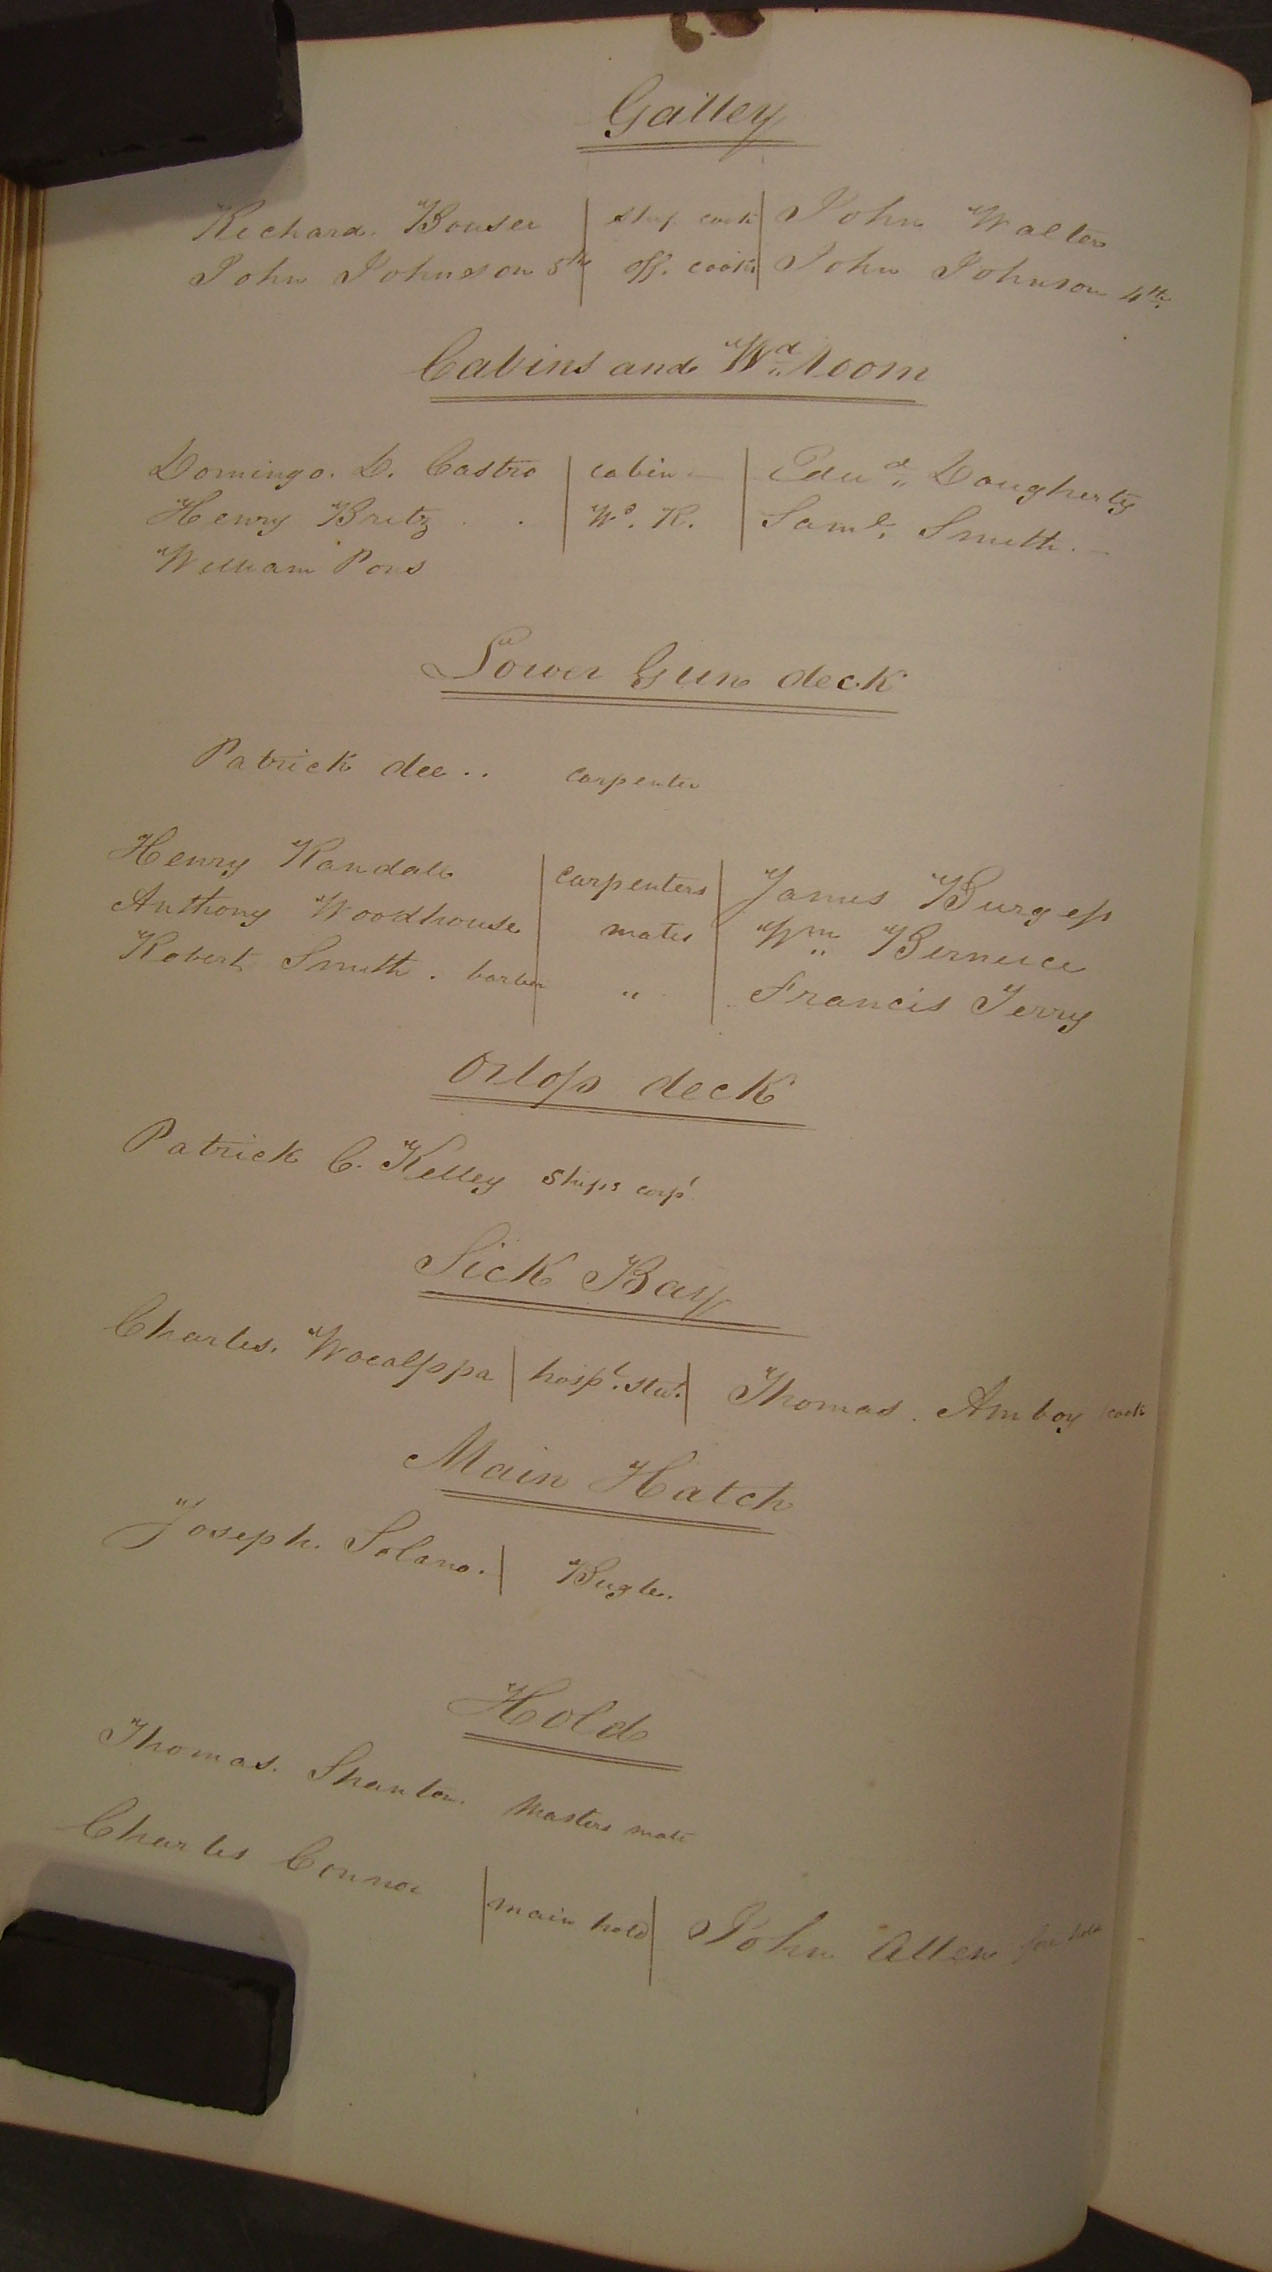 Galley
Richard. Bouser | ship cook | John Walter
John Johnson 5th | off. cook | John Johnson 4th
Cabins and Wd. room
Domingo. D. Castro | cabin - | Edwd. Dougherty
Henry Britz . . | Wd. R. | Saml. Smith. -
William Pons
Lower Gun deck
Patrick dee .. carpenter
Henry Randall | carpenters | James Burgess
Anthony Woodhouse | mates | Wm Berneice
Robert Smith . barber | " | Francis Terry
Orlop deck
Patrick C. Kelley Ships corpl
Sick Bay
Charles. | hospl. std. | Thomas. Amboy cook
Main Hatch
Joseph. Solano. | Bugle.
Hold
Thomas. Stanton. Masters mate
Charles Connor | main hold | John Allen fore hold